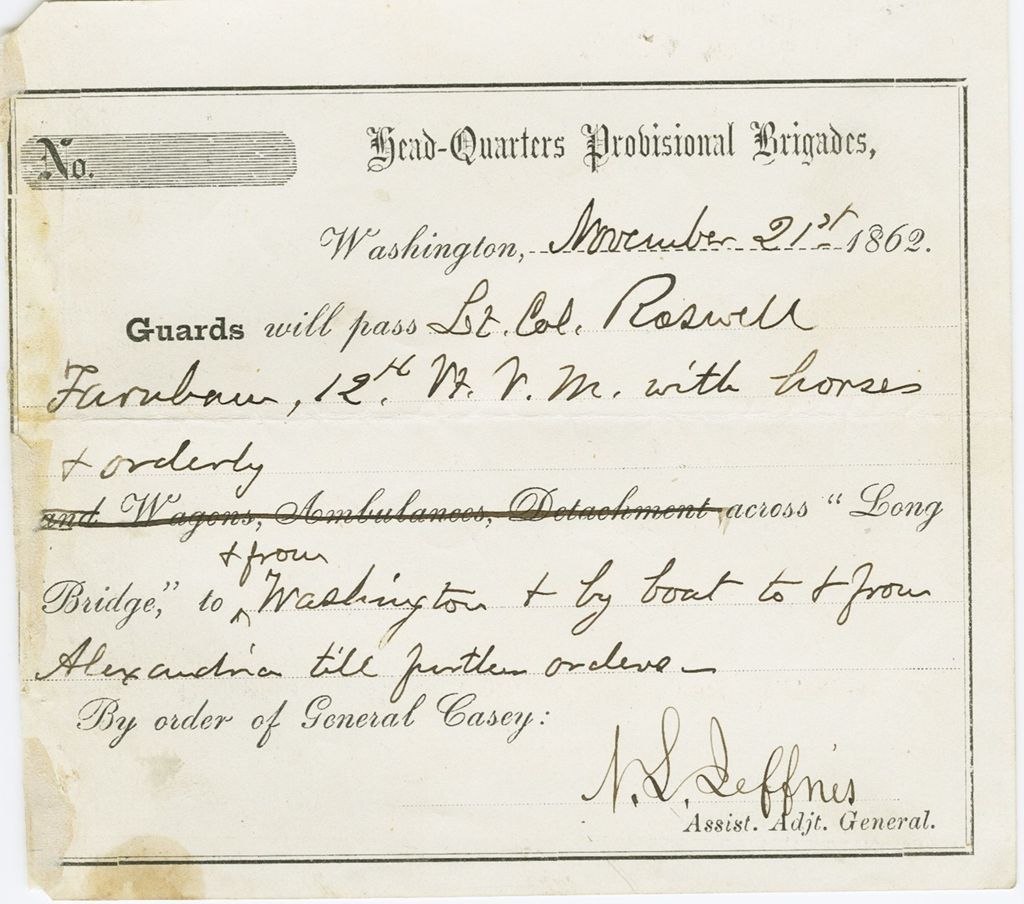 No.
Head-Quarters Provisional Brigades,
Washington, November 21st 1862.
Guards will pass Lt. Col. Roswell
Farnham, 12th Vt. V. M. with horses
& orderly
and Wagons, Ambulances, Detachment across "Long
& from
Bridge," to ^ Washington & by boat to & from
Alexandria till further orders—
By order of General Casey:
N. L. Jeffries
Assist. Adjt. General.